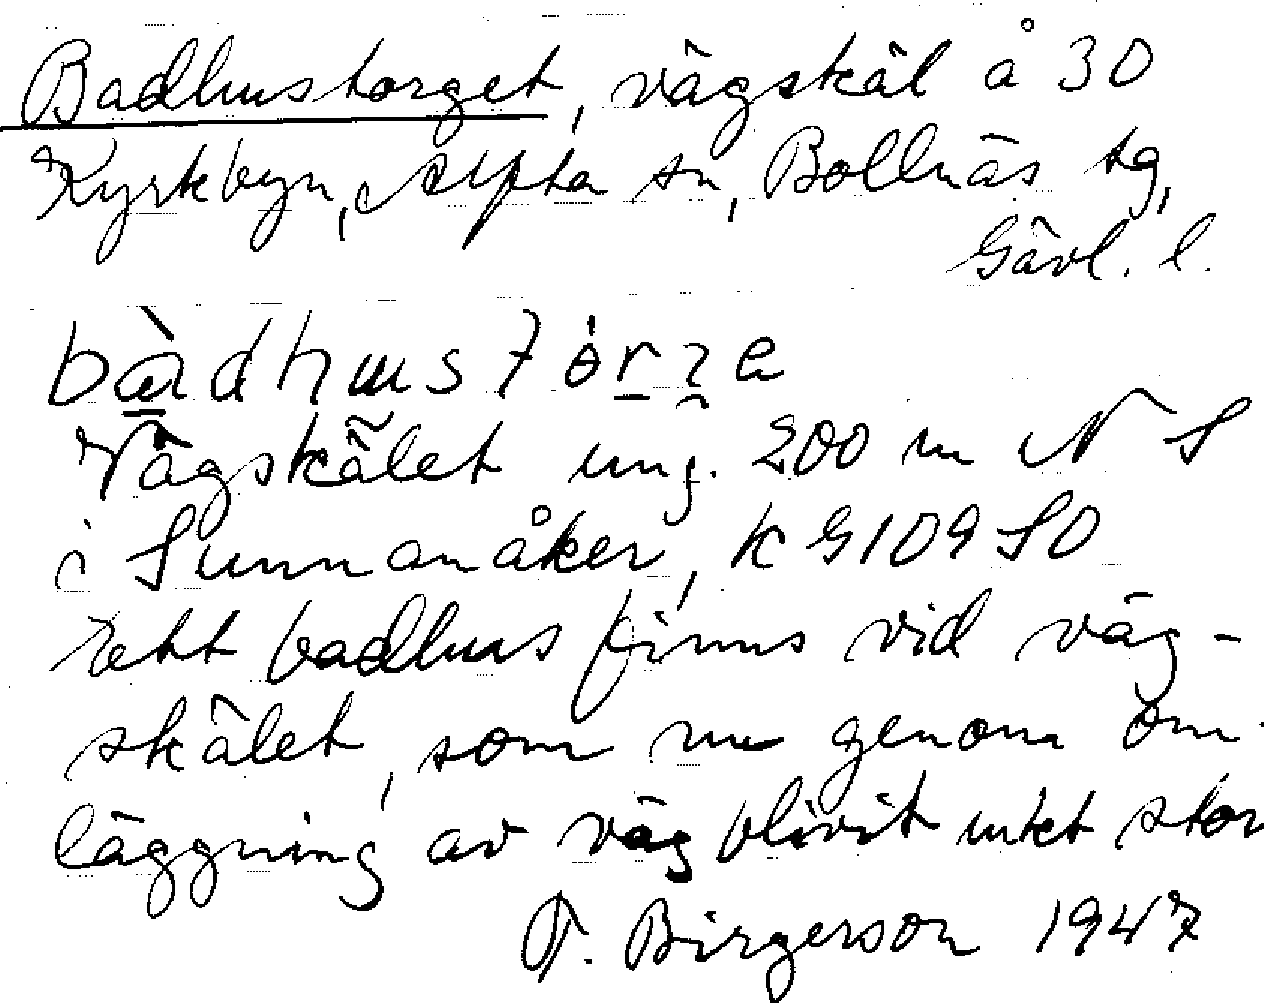 Badhustorget, vägskäl å 30
Kyrkbyn, Alfta sn, Bollnäs tg,
Gävl. l.
Vägskälet ung. 200 m N S
i Sunnanåker, k G109 SO
Ett badhus finns vid väg-
skälet, som nu genom om-
läggning av väg blivit mkt stor
T. Birgerson 1947